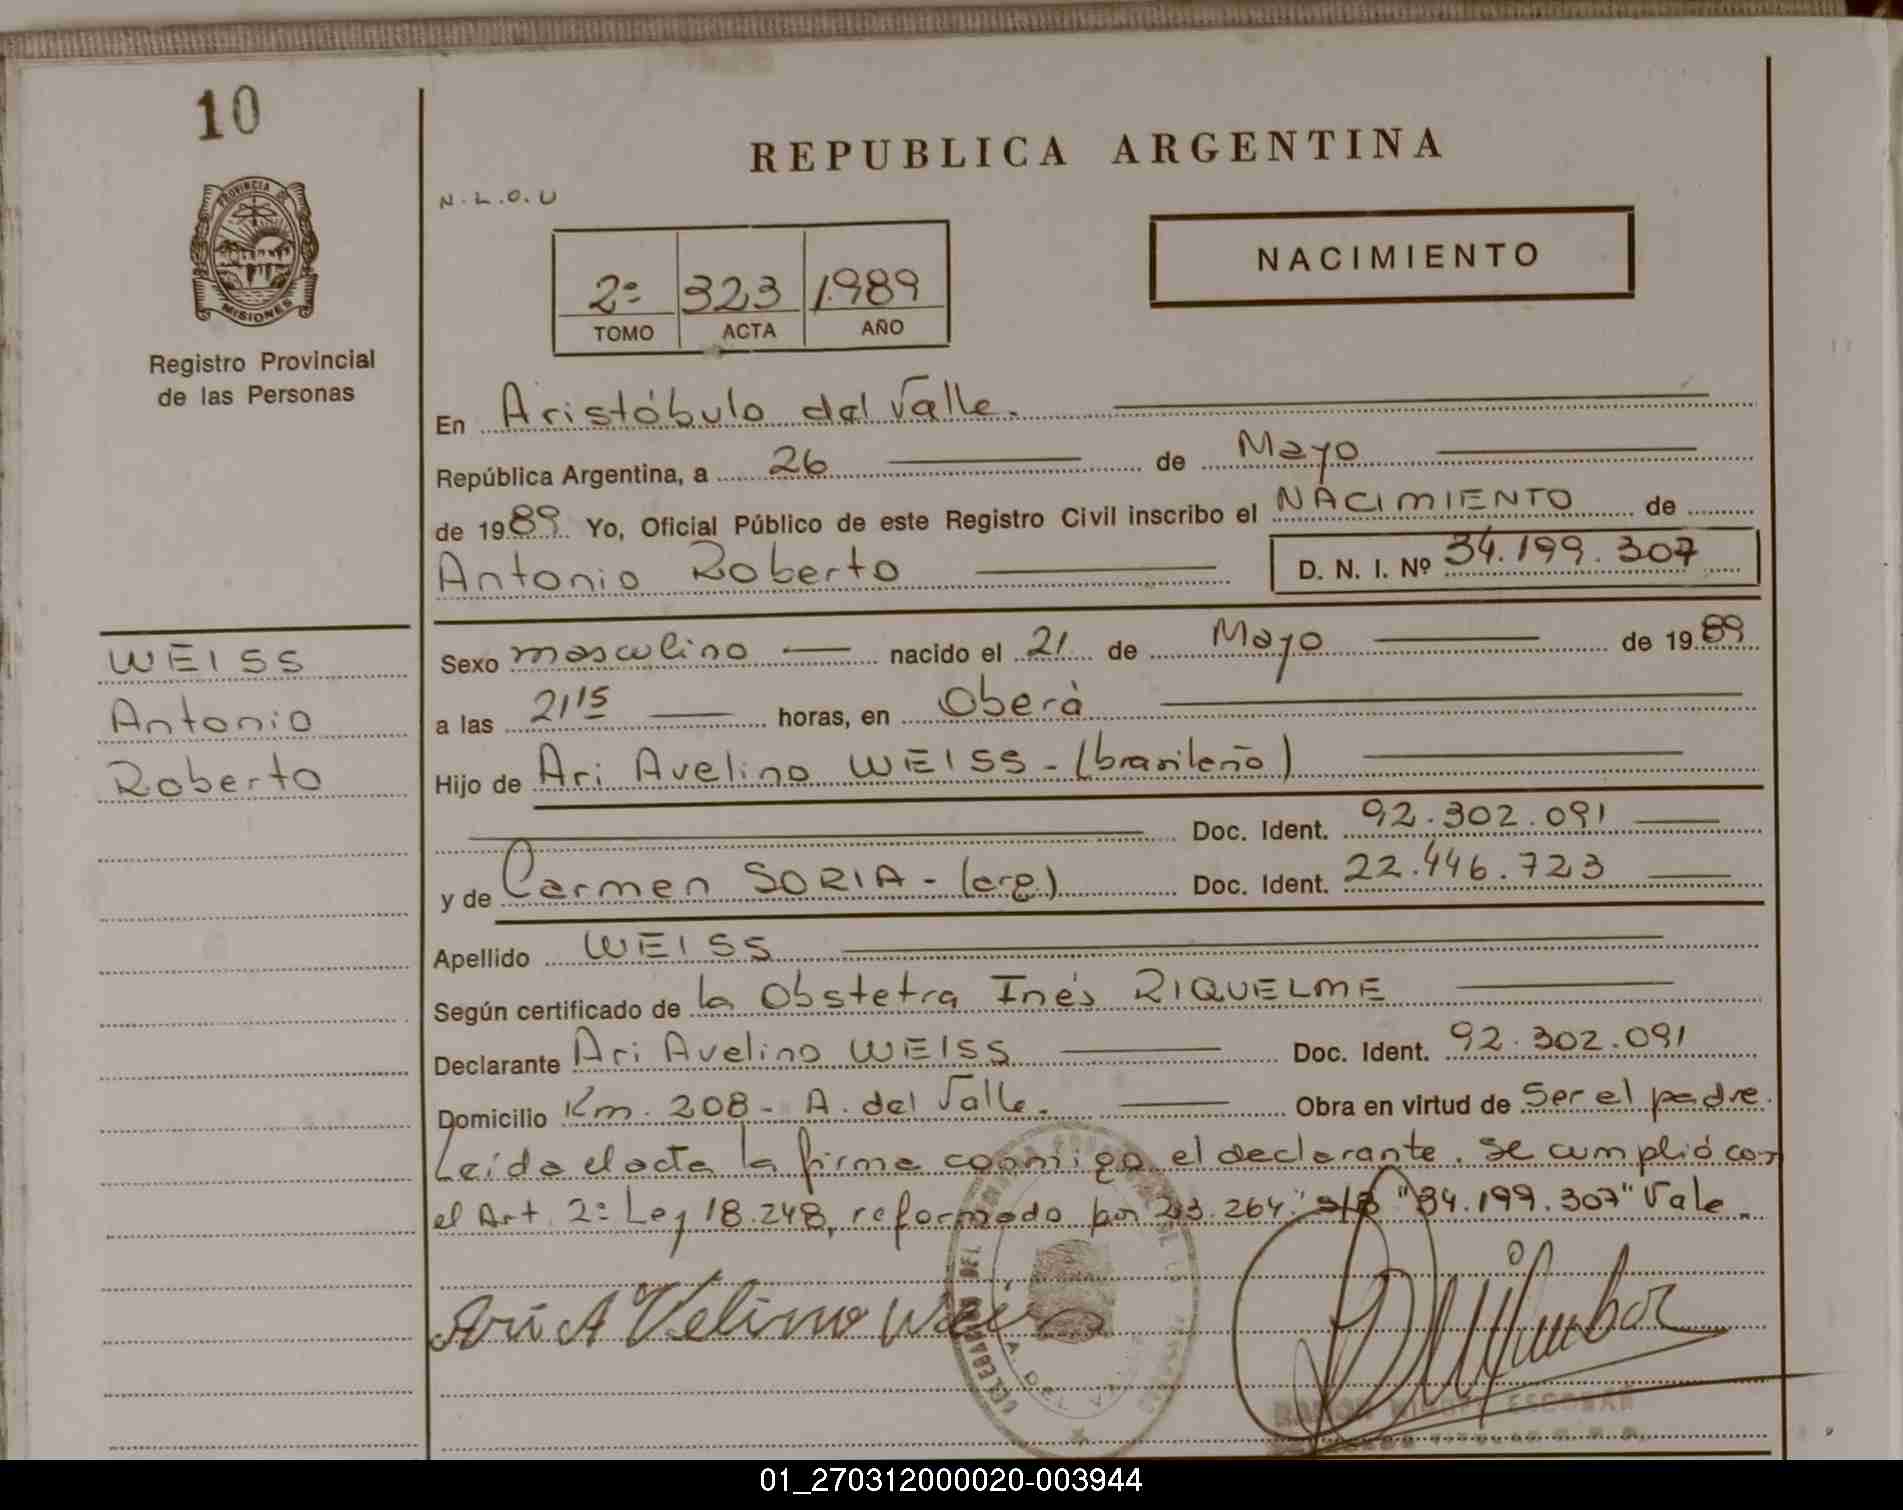 10
REPUBLICA ARGENTINA
N.L.O.U
PROVINCIA DE
MISIONES
NACIMIENTO
2º 323 1.989
TOMO ACTA AÑO
Registro Provincial
de las Personas
En Aristóbulo del Valle.
República Argentina, a 26 de Mayo
de 1989 Yo, Oficial Público de este Registro Civil inscribo el NACIMIENTO de
Antonio Roberto D. N. I. Nº 34.199.307
WEISS
Antonio
Roberto
Sexo masculino nacido el 21 de Mayo de 1989
a las 21 15 horas, en Oberà
Hijo de Ari Avelino WEISS - (brasileño)
Doc. Ident. 92.302.091
y de Carmen SORIA - (arg) Doc. Ident. 22.446.723
Apellido WEISS
Según certificado de la Obstetra Inés RIQUELME
Declarante Ari Avelino WEISS Doc. Ident. 92.302.091
Domicilio Km. 208 - A. del Valle. Obra en virtud de Ser el padre.
Leída el acta la firma conmigo el declarante. Se cumplió con
el Art. 2º Ley 18.248, reformado por 23.264. s/r "34.199.307" Vale.
Ari Avelino Weis
ESCOBAR
01_270312000020-003944